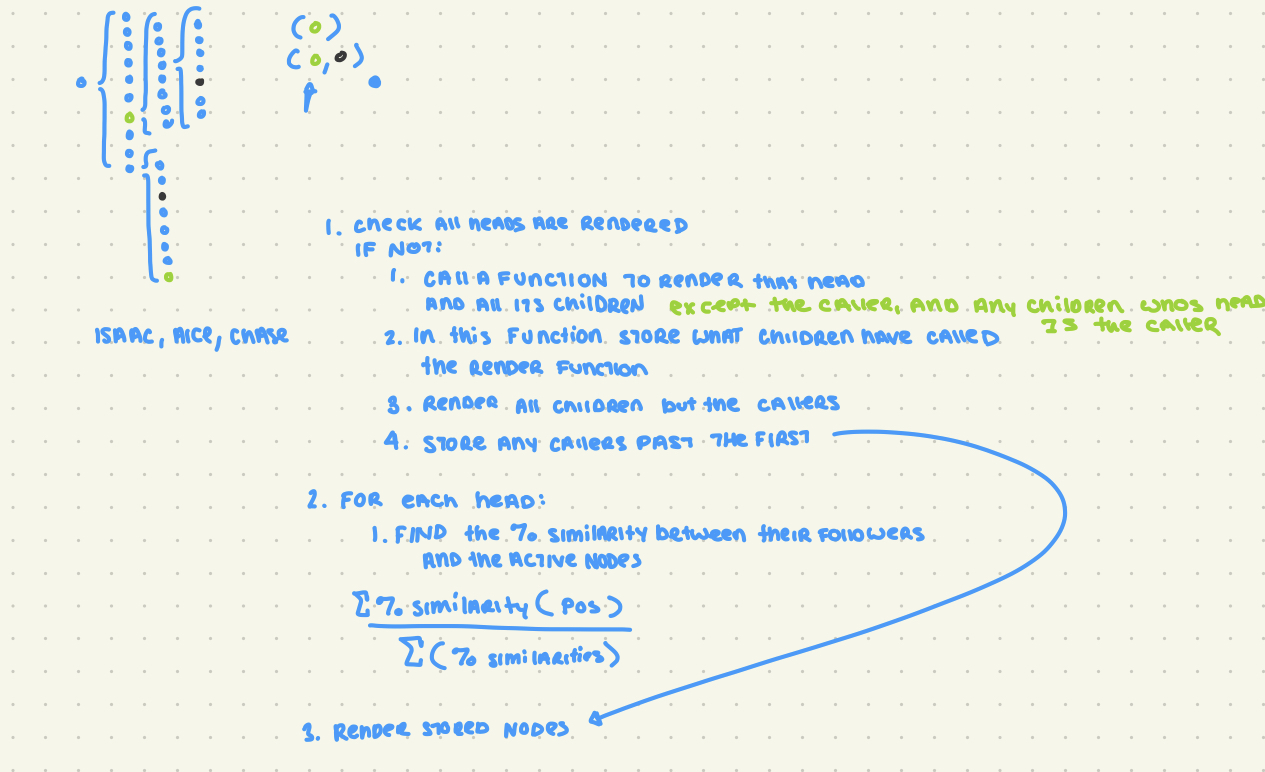 ( o )
( o , o )
1. CHECK All HEADS ARE RENDERED
IF NOT:
1. CAll A FUNCTION TO RENDER that HEAD
AND All ITS ChilDREN except the CAllER, AND Any Children whos HEAD
IS the CAllER
ISAAC, AlCE, CHASE
2. In this Function STORE WHAT Children HAVE CAllED
the RENDER Function
3. RENDER All Children but the CAllERS
4. STORE ANY CAllERS PAST THE FIRST
2. FOR eACH hEAD:
1. FIND the % similARity between their Followers
AND the ACTIVE NODES
Σ % similARity ( Pos )
Σ ( % similARities )
3. RENDER STORED NODES